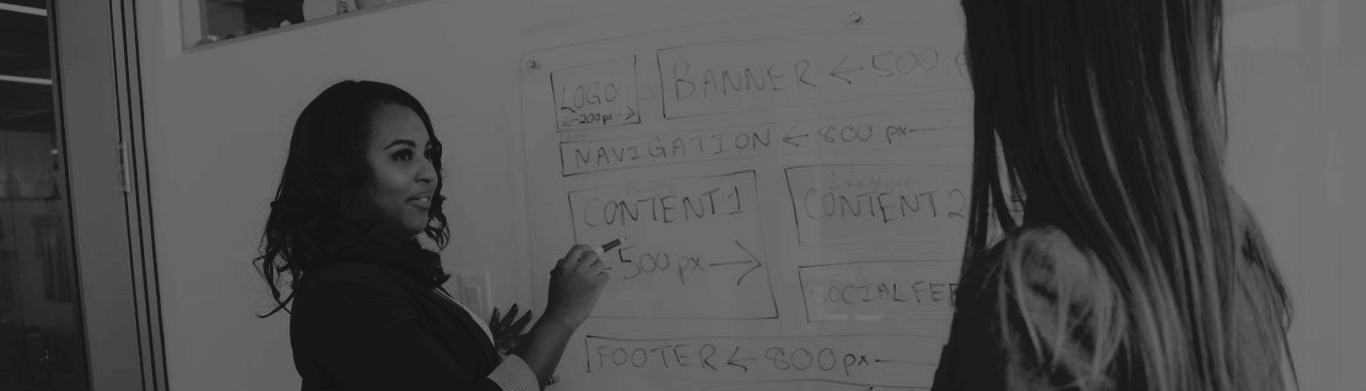 LOGO
200px
BANNER ← 500
NAVIGATION ← 800 px
CONTENT 1
500px →
CONTENT 2
SOCIAL FEE
FOOTER ← 800px